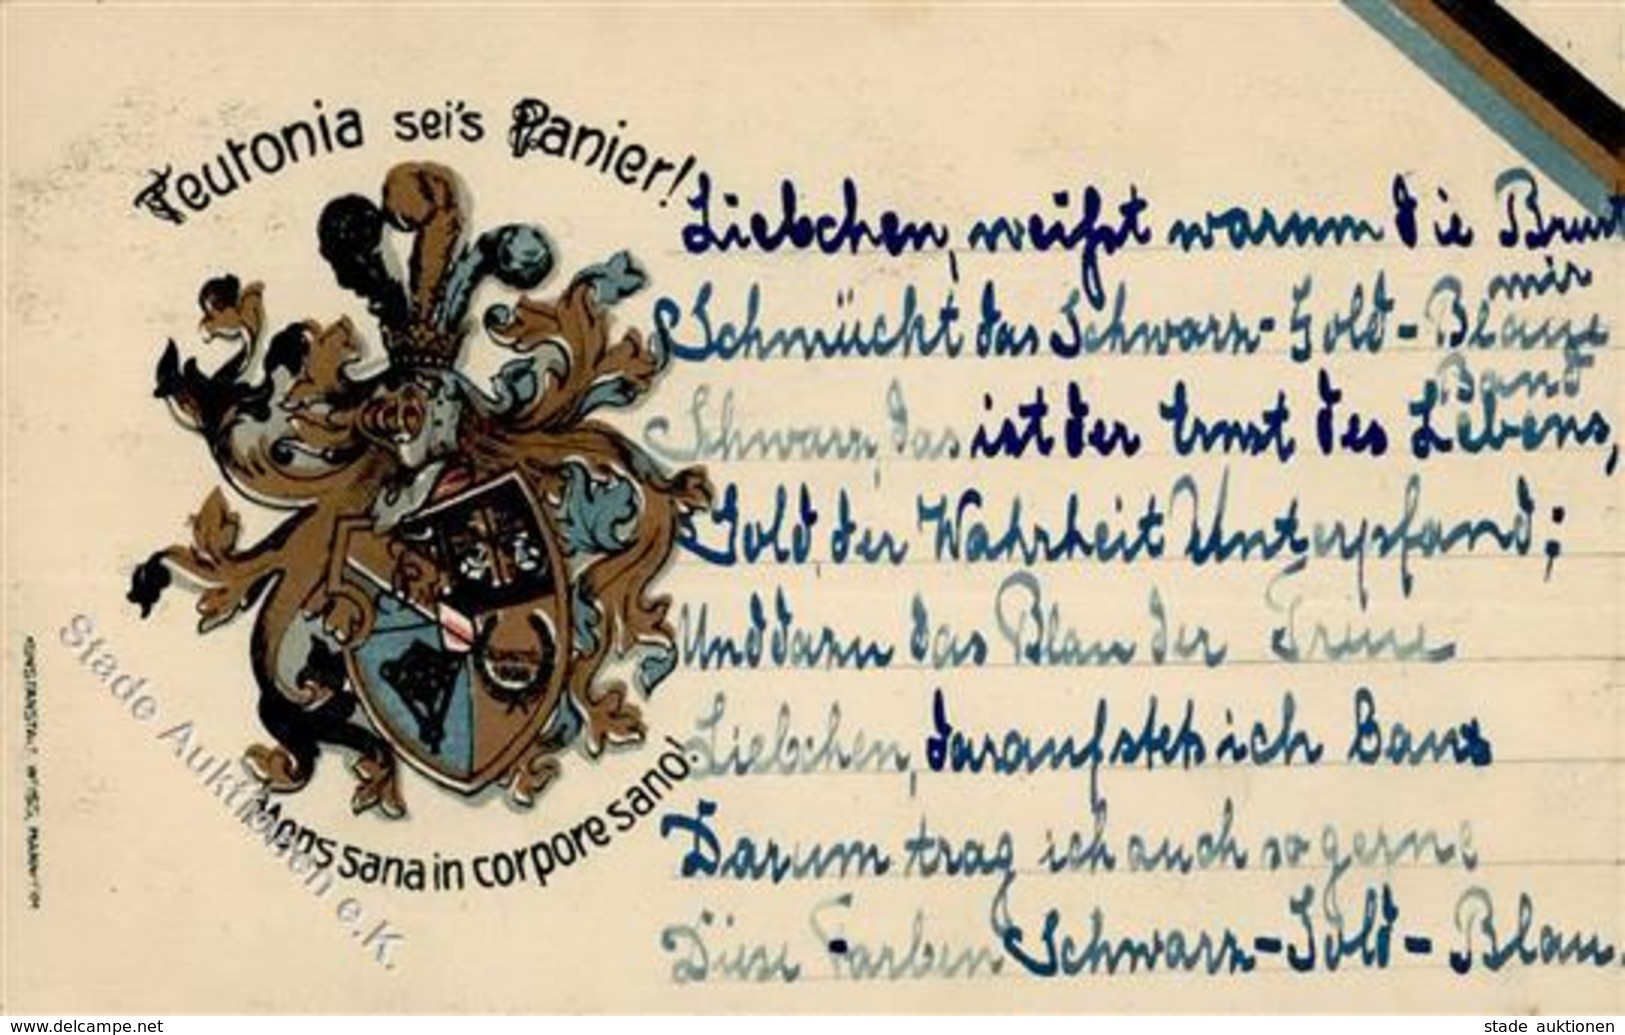 Teutonia sei's Panier!
Liebchen, weißt warum die Brust
mir
Schmückt das Schwarz-Gold-Blaue
Band
Schwarz, das ist der Ernst des Lebens,
Gold, der Wahrheit Unterpfand;
Und dazu das Blau der Treue
Liebchen, darauf steh ich
Darum trag ich auch so gerne
Diese Farben Schwarz-Gold-Blau.
Mens sana in corpore sano!
Stade Auktionen e.K.
www.delcampe.net
stade auktionen